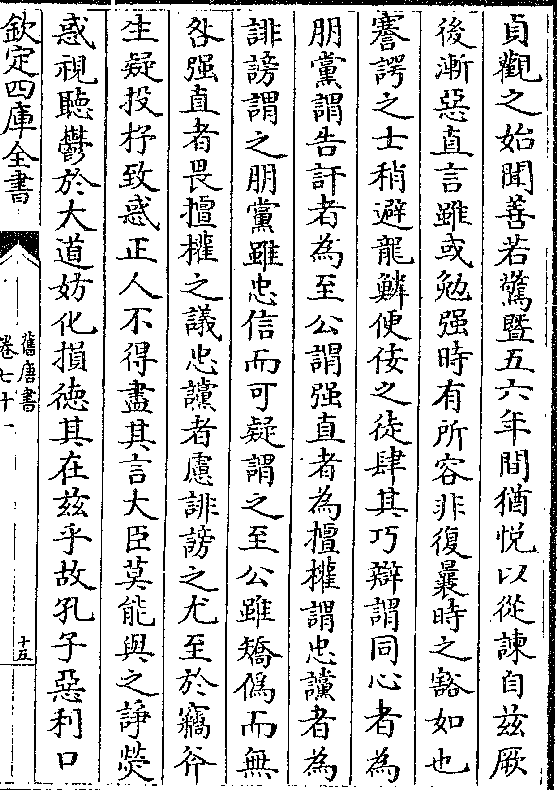 貞觀之始聞善若驚暨五六年間猶悅以從諫自茲厥
後漸惡直言雖或勉强時有所容非復曩時之豁如也
謇諤之士稍避龍鱗便佞之徒肆其巧辯謂同心者為
朋黨謂告訐者為至公謂强直者為擅權謂忠讜者為
誹謗謂之朋黨雖忠信而可疑謂之至公雖矯偽而無
咎强直者畏擅權之議忠讜者慮誹謗之尤至於竊斧
生疑投杼致惑正人不得盡其言大臣莫能與之諍熒
惑視聽鬱於大道妨化損徳其在兹乎故孔子惡利口
欽定四庫全書
舊唐書
卷七十一
十五